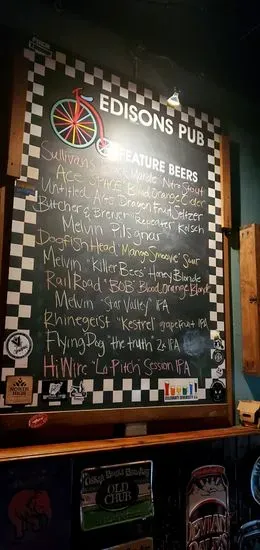 EDISONS PUB
FEATURE BEERS
Sullivans Black Marble Nitro Stout
Ace "SPACE" Blood Orange Cider
Untitled Art Dragon Fruit Seltzer
Butcher & Brewer "Repeater" Kolsch
Melvin Pilsgnar
Dogfish Head "Mango Smoove" Sour
Melvin "Killer Bees" Honey Blonde
Rail Road "BOB" Blood Orange Blonde
Melvin "Star Valley" IPA
Rhinegeist "Kestrel" grapefruit IPA
Flying Dog "the truth" 2x IPA
Hi Wire "Lo Pitch" Session IPA
OLD
CHUB